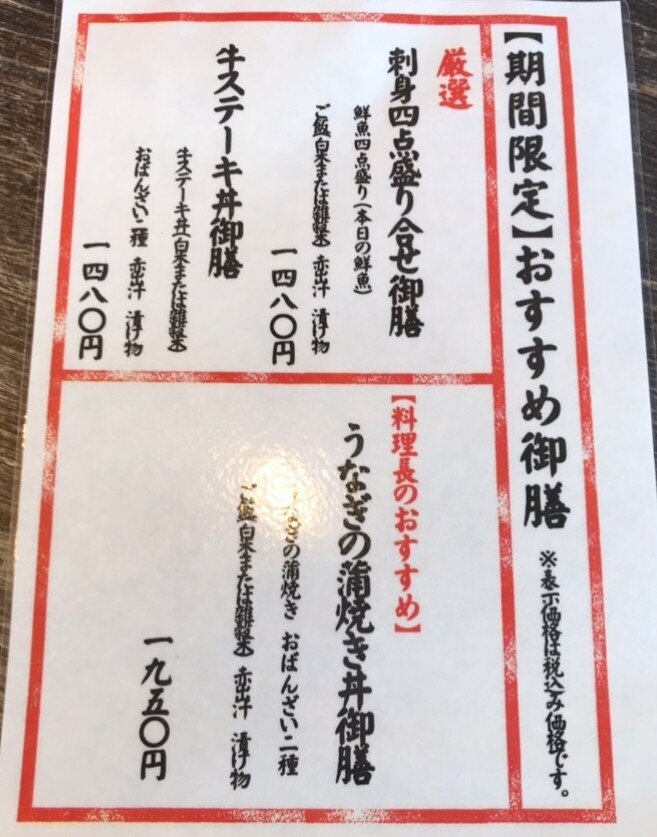 【期間限定】おすすめ御膳
※表示価格は税込み価格です。
厳選
刺身四点盛り合せ御膳
鮮魚四点盛り(本日の鮮魚)
ご飯(白米または雑穀米) 赤出汁 漬け物
一四八〇円
牛ステーキ丼御膳
牛ステーキ丼(白米または雑穀米)
おばんざい二種 赤出汁 漬け物
一四八〇円
【料理長のおすすめ】
うなぎの蒲焼き丼御膳
うなぎの蒲焼き おばんざい二種
ご飯(白米または雑穀米) 赤出汁 漬け物
一九五〇円